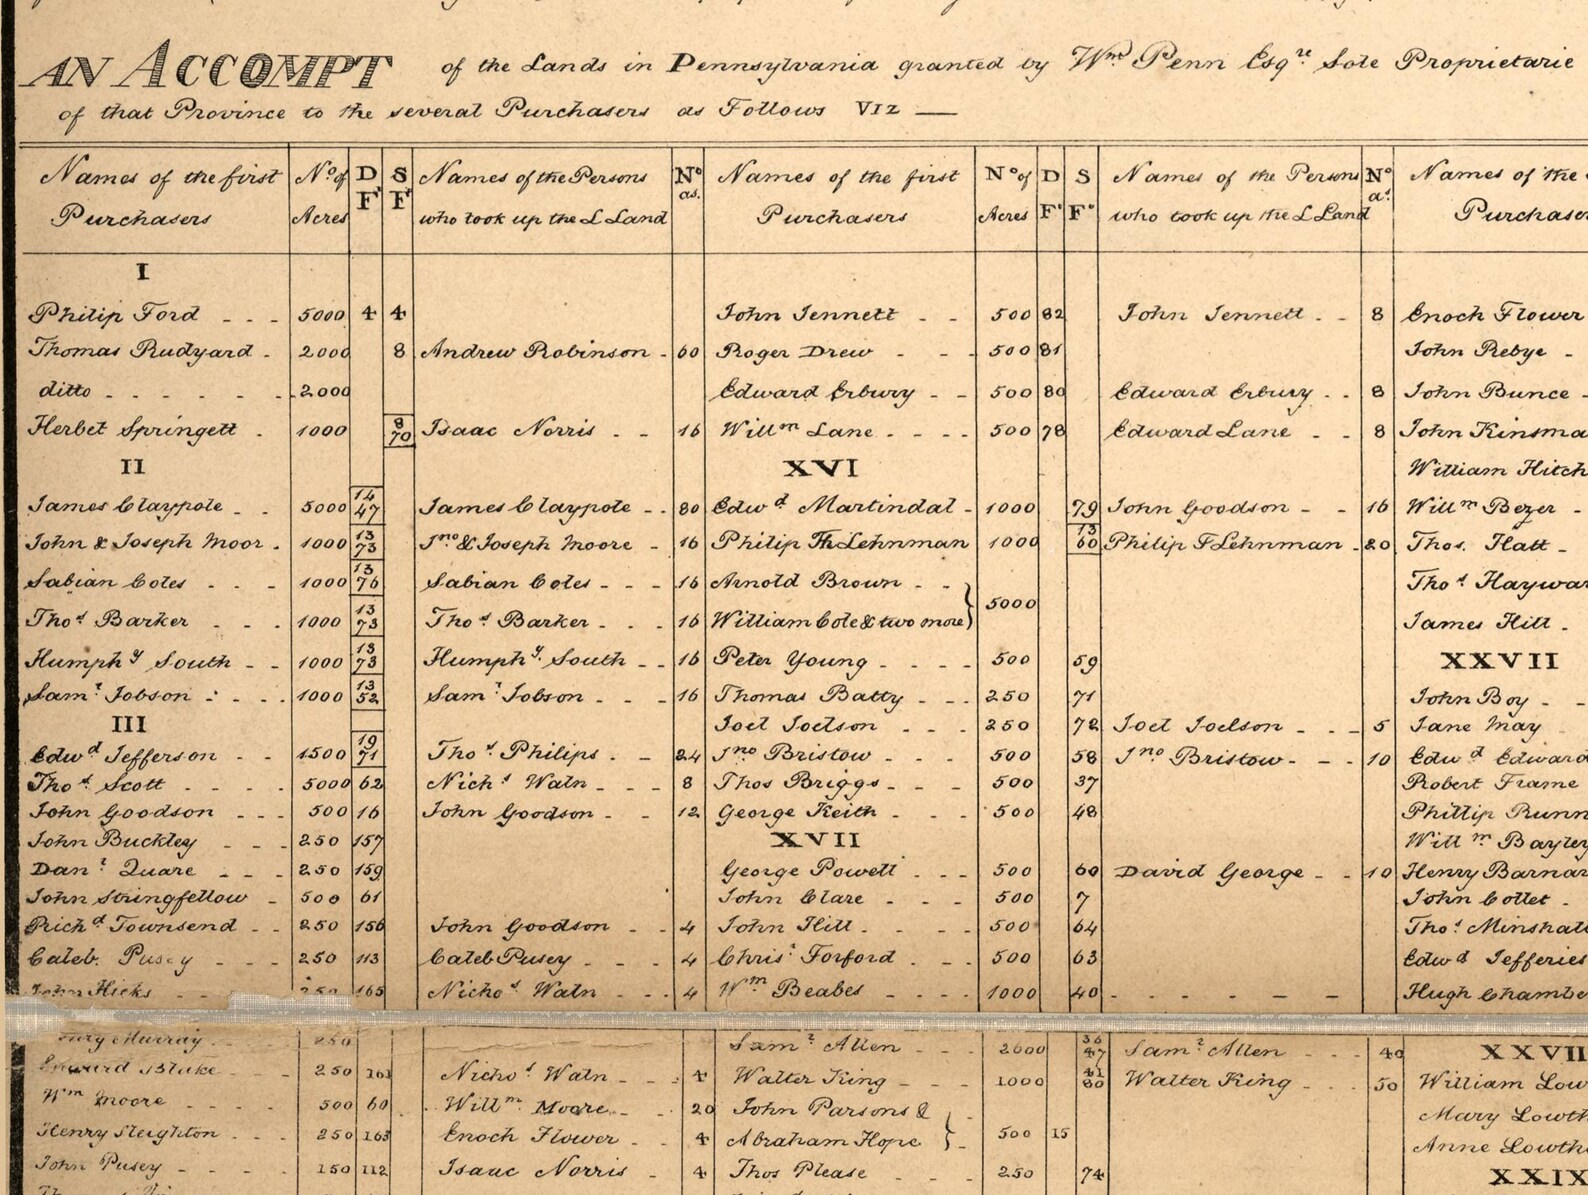 AN ACCOMPT of the Lands in Pennsylvania granted by Wm Penn Esqre Sole Proprietarie
of that Province to the several Purchasers as Follows VIZ —
Names of the first Purchasers No of Acres D F S F Names of the Persons who took up the L Land No as. Names of the first Purchasers No of Acres D Fo S Fo Names of the Persons who took up the L Land No as Names of the Purchase
I
Philip Ford - - - 5000 4 4 John Jennett - - 500 82 John Jennett - - 8 Enoch Flower
Thomas Rudyard - 2000 8 Andrew Robinson - 60 Roger Drew - - - 500 81 John Rebye -
ditto - - - - - - 2000 Edward Erbury - - 500 80 Edward Erbury - - 8 John Bunce -
Herbet Springett - 1000 8 70 Isaac Norris - - 16 Willm Lane - - - - 500 78 Edward Lane - - 8 John Kinsma
II XVI William Hitch
James Claypole - - 5000 14 47 James Claypole - - 80 Edwd Martindal - 1000 79 John Goodson - - 16 Willm Bezer -
John & Joseph Moor - 1000 13 73 Jno & Joseph Moore - 16 Philip Th Lehnman 1000 13 60 Philip F Lehnman - 20 Thos. Hatt -
Sabian Coles - - - 1000 13 76 Sabian Coles - - - 16 Arnold Brown - - } Thos Haywar
Thos Barker - - - 1000 13 73 Thos Barker - - - 16 William Cole & two more } 5000 James Hill -
Humphy South - - 1000 13 73 Humphy South - - 16 Peter Young - - - - 500 59 XXVII
Saml Jobson - - - 1000 13 52 Saml Jobson - - - 16 Thomas Batty - - - 250 71 John Boy - -
III Joel Joelson - - - 250 72 Joel Joelson - - - 5 Jane May
Edwd Jefferson - - 1500 19 71 Thos Philips - - 24 Jno Bristow - - - 500 58 Jno Bristow - - - 10 Edwd Edward
Thos Scott - - - - 5000 62 Nichs Waln - - - 8 Thos Briggs - - - 500 37 Robert Frame
John Goodson - - - 500 16 John Goodson - - 12 George Keith - - - 500 48 Phillip Runn
John Buckley - - - 250 157 XVII Willm Bayley
Danl Quare - - - 250 159 George Powell - - - 500 60 David George - - 10 Henry Barnar
John Stringfellow - 500 61 John Clare - - - 500 7 John Collet -
Richd Townsend - - 250 156 John Goodson - - 4 John Hill - - - - 500 64 Thos Minshall
Caleb Pusey - - - 250 113 Caleb Pusey - - - 4 Chrisr Forford - - 500 63 Edwd Jefferies
John Hicks - - 250 165 Nichos Waln - - - 4 Wm Beabes - - - - 1000 40 - - - - - - Hugh Chambe
Murray - - 250 Saml Allen - - - 2000 36 47 Saml Allen - - - 40 XXVII
Blake - - - 250 161 Nichos Waln - - - 4 Walter King - - - 1000 41 80 Walter King - - - 50 William Low
Wm Moore - - - - 500 60 Willm Moore - - 20 John Parsons & } Mary Lowth
Henry Sleighton - - - 250 163 Enoch Flower - - 4 Abraham Hope } - 500 15 Anne Lowth
John Pusey - - - - 150 112 Isaac Norris - 4 Thos Please - - - 250 74 XXIX